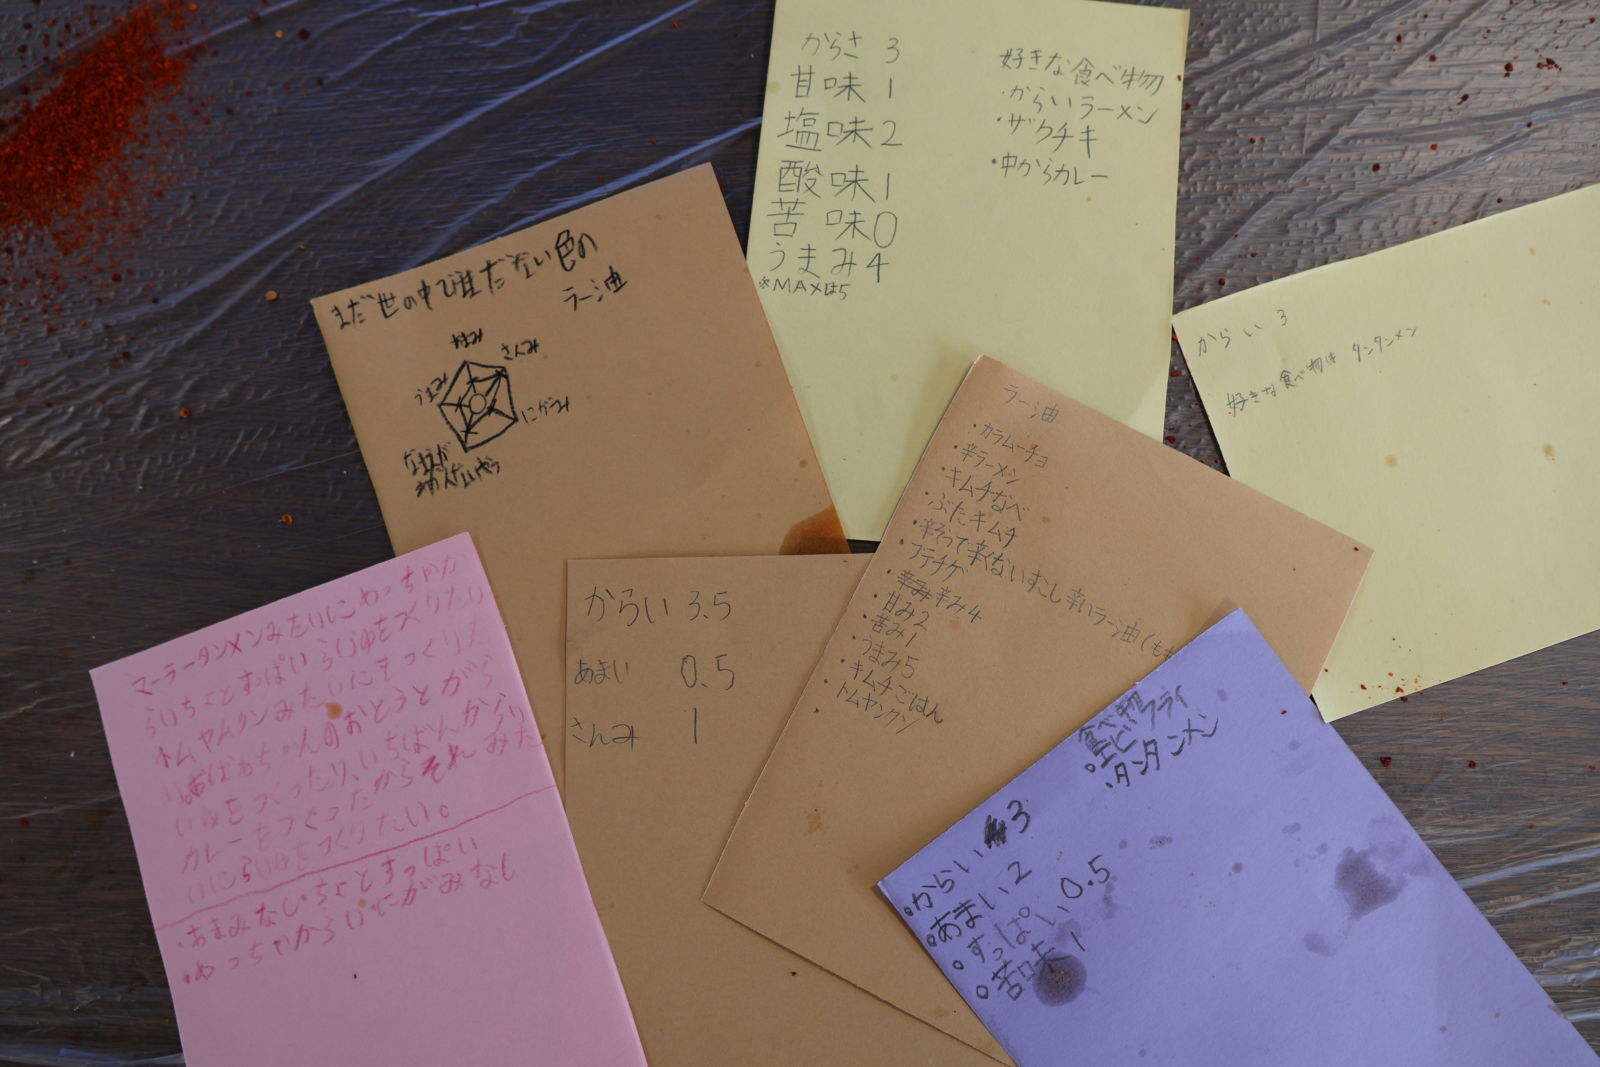 からさ 3
甘味 1
塩味 2
酸味 1
苦味 0
うまみ 4
※MAXは5
好きな食べ物
・からいラーメン
・ザクチキ
・中からカレー
まだ世の中で誰だ
ない色の
ラー油
さんみ
にがみ
うまみ
からい 3
好きな食べ物は タンタンメン
ラー油
・カラムーチョ
・辛ラーメン
・キムチなべ
・ぶたキムチ
・辛そうで辛くないすこし辛いラー油(もも
・プテチゲ
・辛み4
・甘み2
・苦み1
・うまみ5
・キムチごはん
・トムヤンクン
からい 3.5
あまい 0.5
さんみ 1
マーラータンメンみたいにめっちゃか
らいちょとすっぱいらいゆをつくりたい
トムヤムクンみたいにもつくりた
い。おばあちゃんのおとうとがら
いゆをつくったり、いちばんからい
カレーをつくったからそれみた
いにらいゆをつくりたい。
・あまみなしちょとすっぱい
・めっちゃからいにがみなし
食べ物
○エビフライ
・タンタンメン
○からい 3
○あまい 2
○すっぱい 0.5
○苦味 1